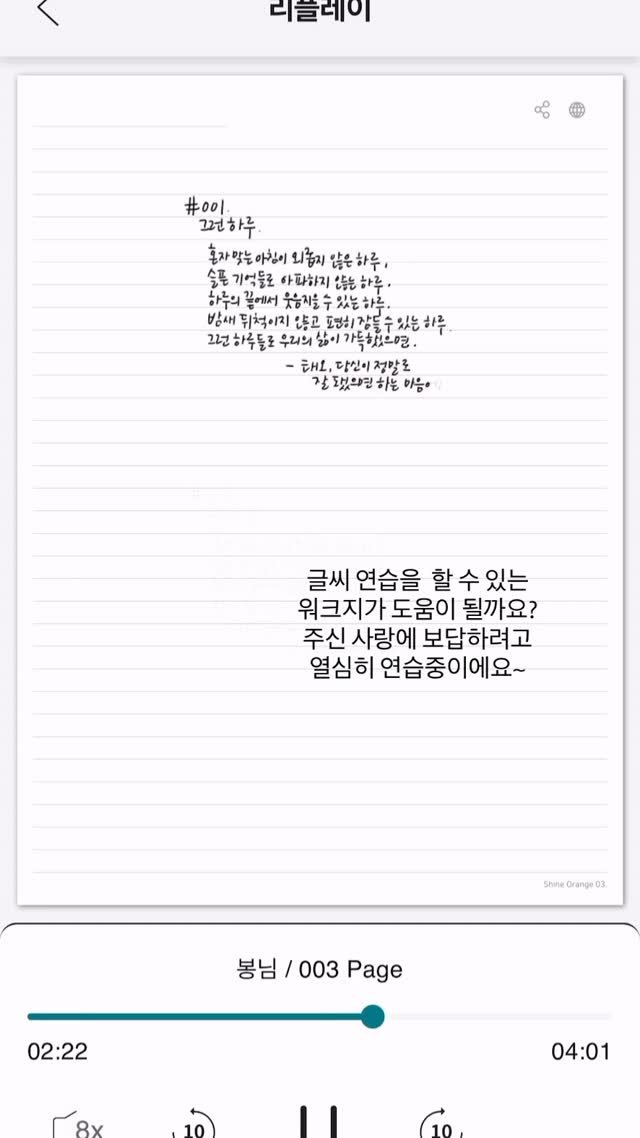 리플레이
#001.
그런 하루.
혼자 맞는 아침이 외롭지 않은 하루,
슬픈 기억들로 아파하지 않는 하루.
하루의 끝에서 웃음지을 수 있는 하루.
밤새 뒤척이지 않고 편히 잠들 수 있는 하루.
그런 하루들로 우리의 삶이 가득했으면.
- 태오, 당신이 정말로
잘 됐으면 하는 마음에
글씨 연습을 할 수 있는
워크지가 도움이 될까요?
주신 사랑에 보답하려고
열심히 연습중이에요~
Shine Orange 03.
봉님 / 003 Page
02:22 04:01
8x 10 10